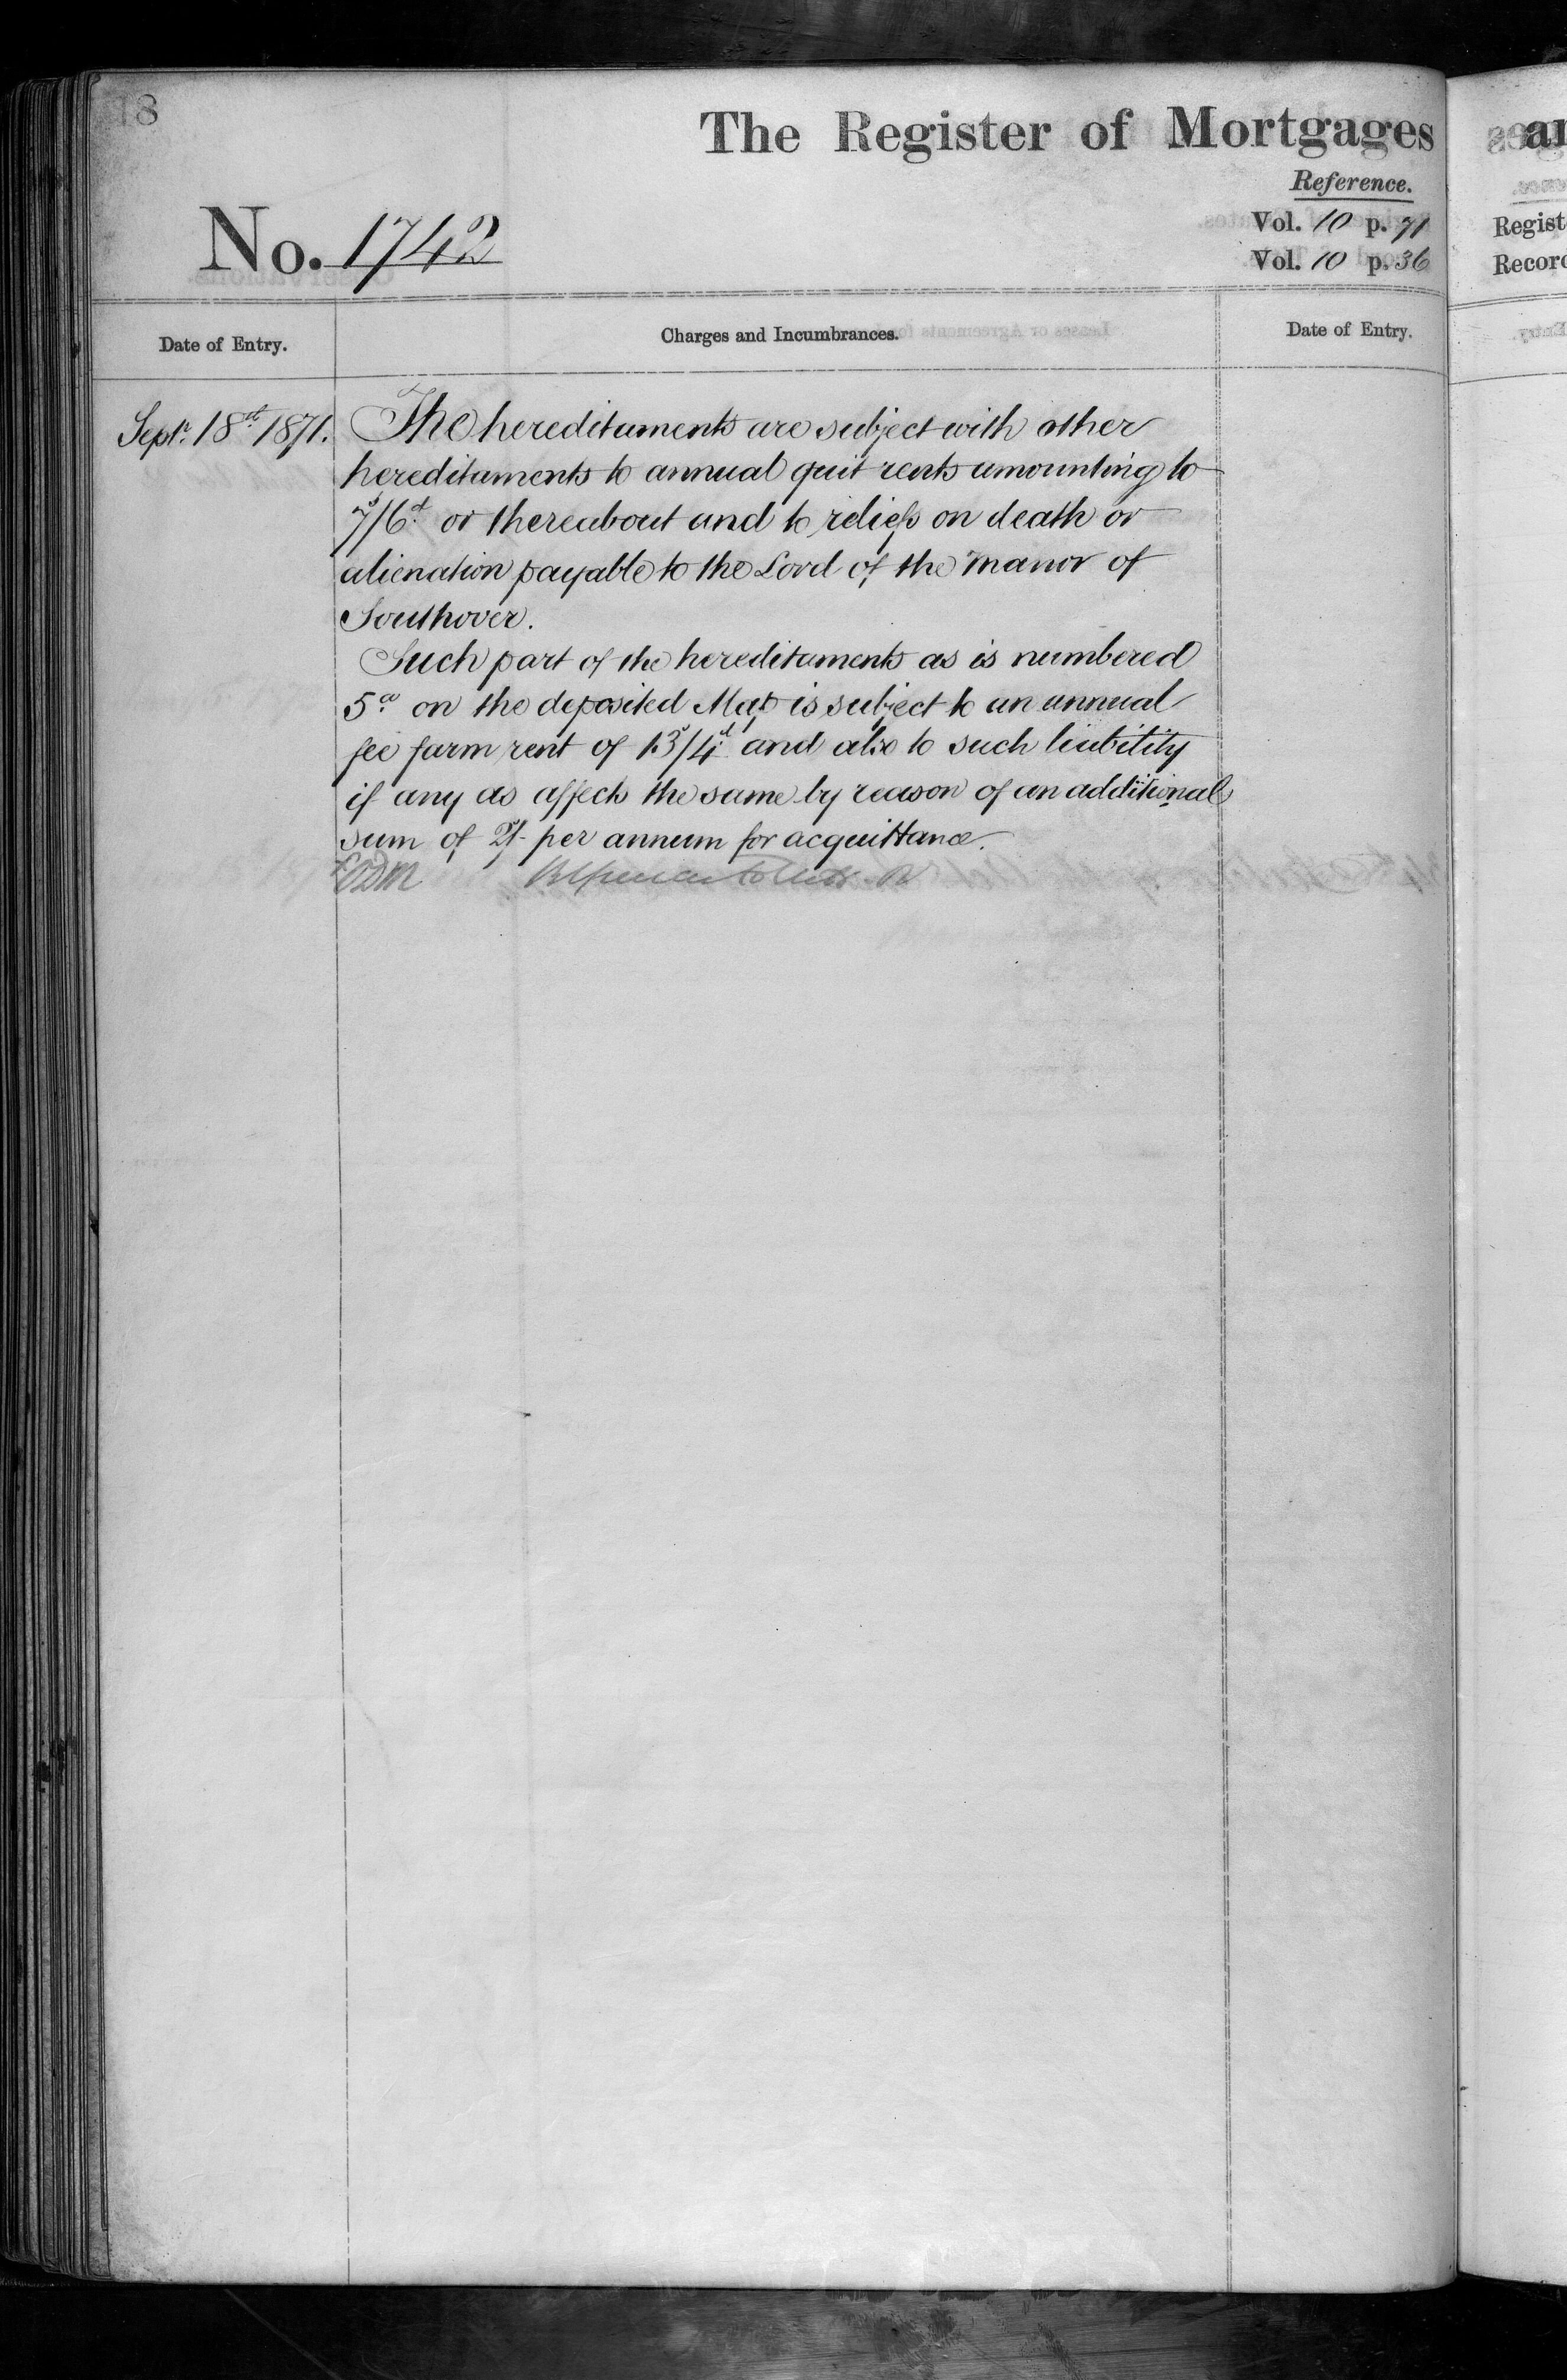 18
The Register of Mortgages
Reference.
No. 1742
Vol. 10 p. 71
Vol. 10 p. 36
Date of Entry.
Charges and Incumbrances.
Date of Entry.
Septr. 18st 1871.
The hereditaments are subject with other
hereditaments to annual quit rents amounting to
7s/6d. or thereabout and to reliefs on death or
alienation payable to the Lord of the Manor of
Southover.
Such part of the hereditaments as is numbered
5a. on the deposited Map is subject to an annual
fee farm rent of 13s/4d. and also to such liability
if any as affects the same by reason of an additional
sum of 2s/- per annum for acquittance.
an
Regist
Record